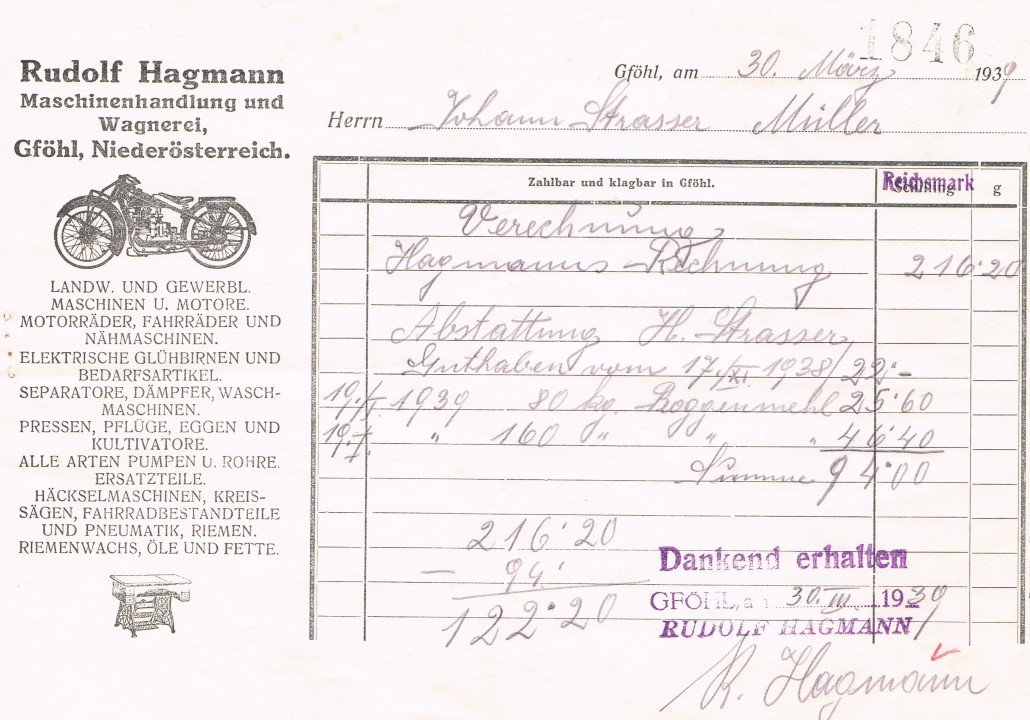 1846
Rudolf Hagmann
Maschinenhandlung und
Wagnerei,
Gföhl, Niederösterreich.
LANDW. UND GEWERBL.
MASCHINEN U. MOTORE.
MOTORRÄDER, FAHRRÄDER UND
NÄHMASCHINEN.
ELEKTRISCHE GLÜHBIRNEN UND
BEDARFSARTIKEL.
SEPARATORE, DÄMPFER, WASCH-
MASCHINEN.
PRESSEN, PFLÜGE, EGGEN UND
KULTIVATORE.
ALLE ARTEN PUMPEN U. ROHRE.
ERSATZTEILE.
HÄCKSELMASCHINEN, KREIS-
SÄGEN, FAHRRADBESTANDTEILE
UND PNEUMATIK, RIEMEN.
RIEMENWACHS, ÖLE UND FETTE.
Gföhl, am 30. März 1939
Herrn Johann Strasser Müller
Zahlbar und klagbar in Gföhl. Reichsmark g
Verechnung
Hagmanns Rechnung 216·20
Abstattung H. Strasser
Guthaben vom 17./XI. 1938/ 22·-
19./I. 1939 80 kg. Roggenmehl 25·60
19./I. " 160 " " " 46·40
Summe 94·00
216·20
- 94·
122·20
Dankend erhalten
GFÖHL, am 30. III. 1939
RUDOLF HAGMANN
R. Hagmann